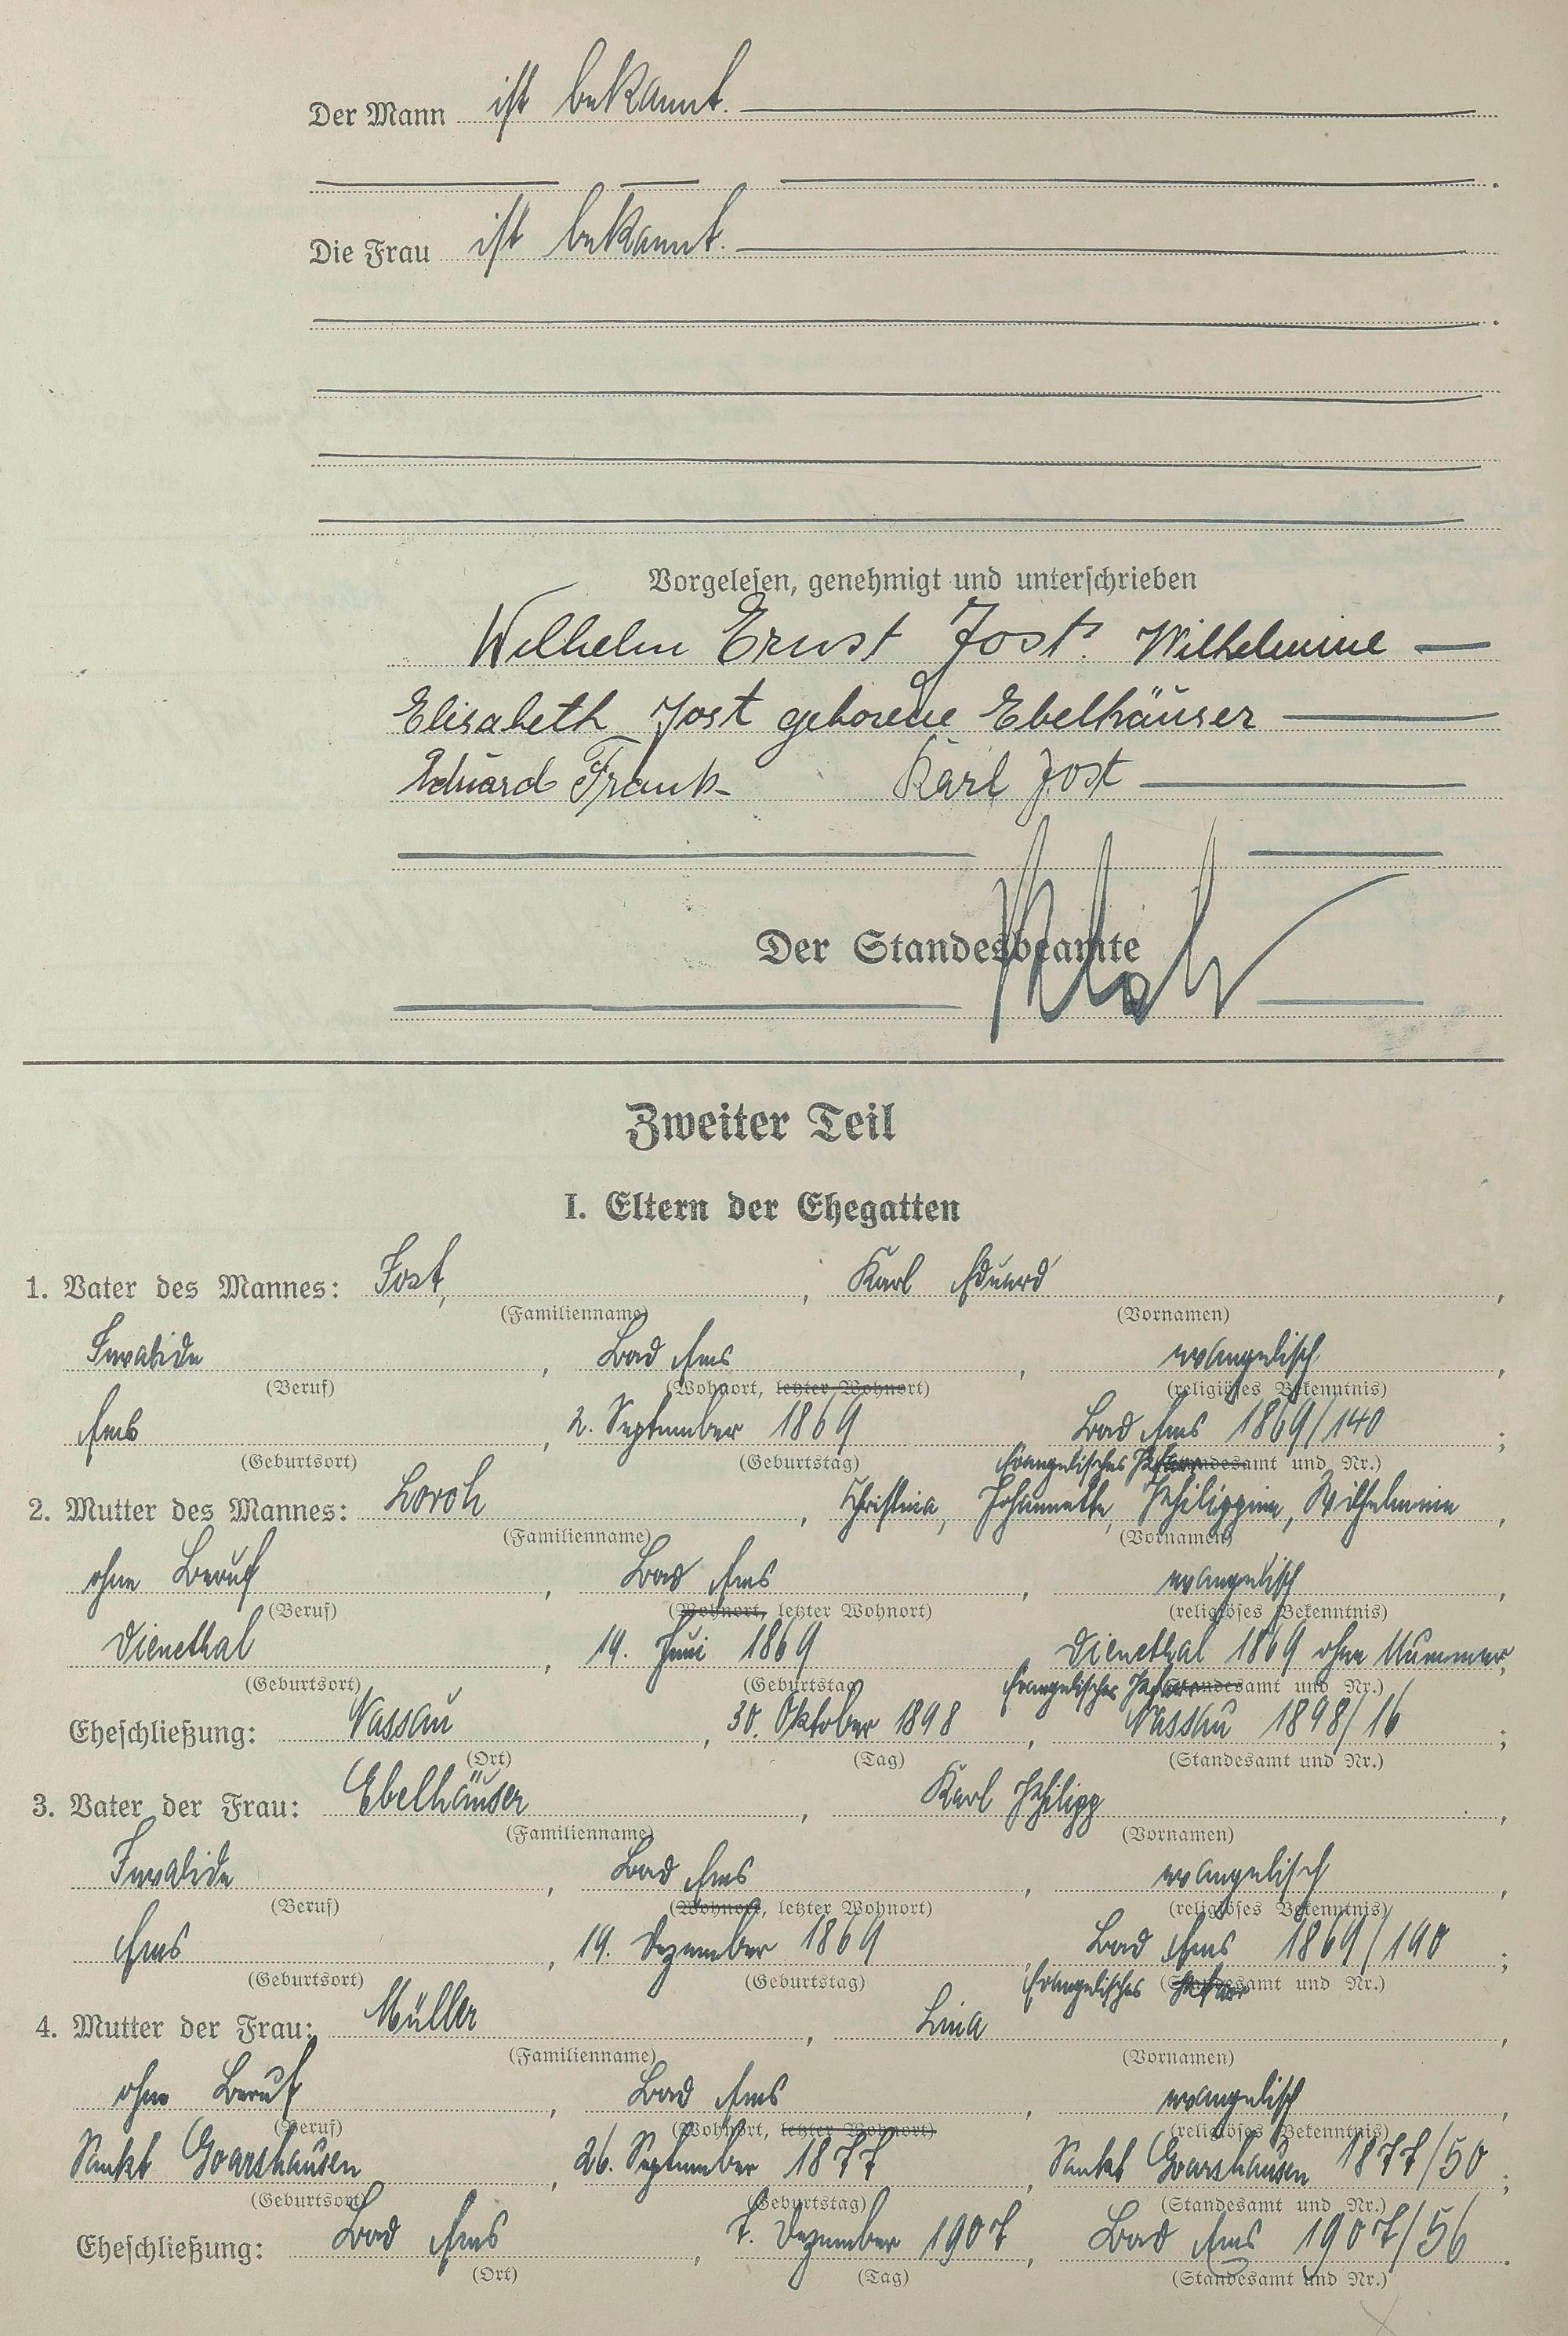 Der Mann ist bekannt.
Die Frau ist bekannt.
Vorgelesen, genehmigt und unterschrieben
Wilhelm Ernst Jost. Wilhelmine
Elisabeth Jost geborene Ebelhäuser
Eduard Frank Karl Jost
Der Standesbeamte
Zweiter Teil
I. Eltern der Ehegatten
1. Vater des Mannes: Jost, , Karl Eduard ,
(Familienname) (Vornamen)
Invalide , Bad Ems , evangelisch ,
(Beruf) (Wohnort, letzter Wohnort) (religiöses Bekenntnis)
Ems , 2. September 1869 Bad Ems 1869/140 ;
(Geburtsort) (Geburtstag) Evangelisches Pfarr (Standesamt und Nr.)
2. Mutter des Mannes: Lorch , Christina, Johannette, Philippine, Wilhelmine ,
(Familienname) (Vornamen)
ohne Beruf , Bad Ems , evangelisch ,
(Beruf) (Wohnort, letzter Wohnort) (religiöses Bekenntnis)
Dienethal , 19. Juni 1869 Dienethal 1869 ohne Nummer,
(Geburtsort) (Geburtstag) Evangelisches Pfarr (Standesamt und Nr.)
Eheschließung: Nassau , 30. Oktober 1898 , Nassau 1898/16 ;
(Ort) (Tag) (Standesamt und Nr.)
3. Vater der Frau: Ebelhäuser , Karl Philipp ,
(Familienname) (Vornamen)
Invalide , Bad Ems , evangelisch ,
(Beruf) (Wohnort, letzter Wohnort) (religiöses Bekenntnis)
Ems , 19. Dezember 1869 , Bad Ems 1869/190 ;
(Geburtsort) (Geburtstag) Evangelisches Pfarr (Standesamt und Nr.)
4. Mutter der Frau: Müller , Lina ,
(Familienname) (Vornamen)
ohne Beruf , Bad Ems , evangelisch ,
(Beruf) (Wohnort, letzter Wohnort) (religiöses Bekenntnis)
Sankt Goarshausen , 26. September 1877 , Sankt Goarshausen 1877/50 ;
(Geburtsort) (Geburtstag) (Standesamt und Nr.)
Eheschließung: Bad Ems , 7. Dezember 1907 , Bad Ems 1907/56 .
(Ort) (Tag) (Standesamt und Nr.)